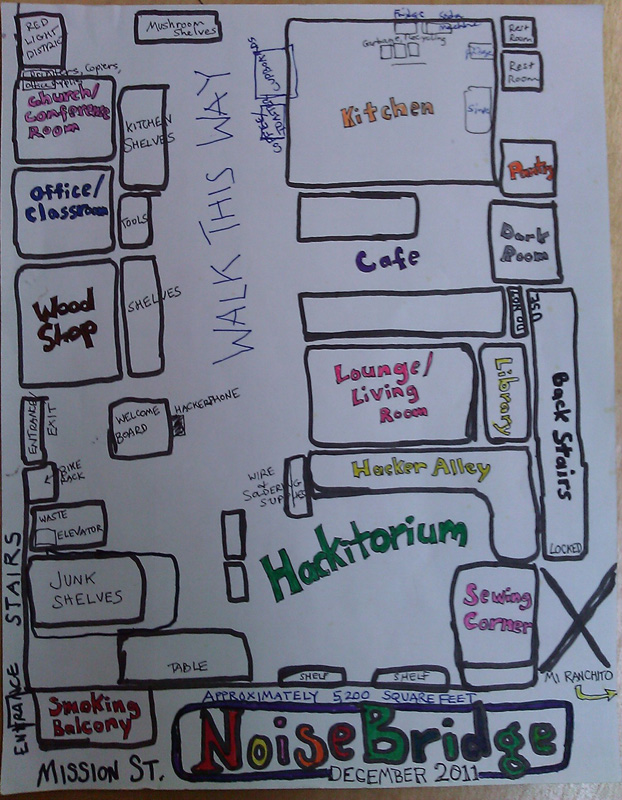 RED
LIGHT
DISTRICT
Mushroom
Shelves
Fridge
Garbage, Recycling
Rest
Room
Rest
Room
Sink
Kitchen
Pantry
Printers, Copiers,
Office Supplies
Church/
Conference
Room
KITCHEN
SHELVES
Office/
Classroom
TOOLS
WALK THIS WAY
Dark
Room
Cafe
Wood
Shop
SHELVES
Lounge/
Living
Room
Library
Back Stairs
LOCKED
ENTRANCE/
EXIT
WELCOME
BOARD
HACKERPHONE
BIKE
RACK
WIRE
&
SOLDERING
SUPPLIES
Hacker Alley
WASTE
ELEVATOR
Hackitorium
JUNK
SHELVES
Sewing
Corner
TABLE
SHELF
SHELF
MI RANCHITO
ENTRANCE STAIRS
Smoking
Balcony
APPROXIMATELY 5,200 SQUARE FEET
NoiseBridge
DECEMBER 2011
MISSION ST.